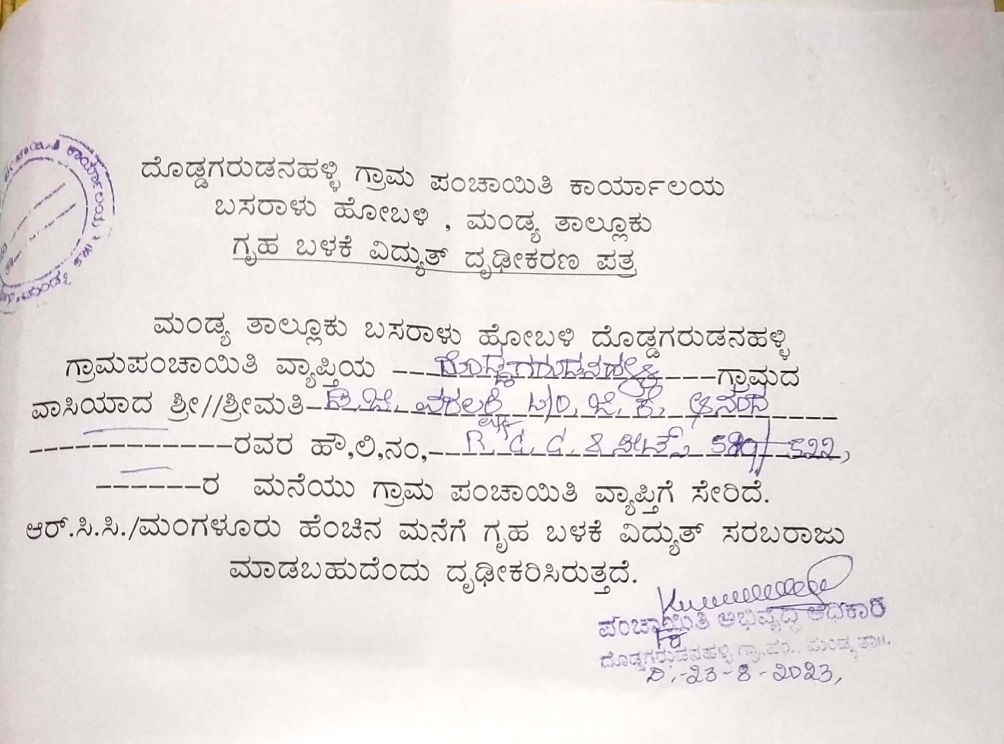 ಕಾರ್ಯಾಲಯ
ದೊಡ್ಡಗರುಡನಹಳ್ಳಿ ಗ್ರಾಮ ಪಂಚಾಯಿತಿ ಕಾರ್ಯಾಲಯ
ಬಸರಾಳು ಹೋಬಳಿ , ಮಂಡ್ಯ ತಾಲ್ಲೂಕು
ಗೃಹ ಬಳಕೆ ವಿದ್ಯುತ್ ದೃಢೀಕರಣ ಪತ್ರ
ಮಂಡ್ಯ ತಾಲ್ಲೂಕು ಬಸರಾಳು ಹೋಬಳಿ ದೊಡ್ಡಗರುಡನಹಳ್ಳಿ
ಗ್ರಾಮಪಂಚಾಯಿತಿ ವ್ಯಾಪ್ತಿಯ ---ದೊಡ್ಡಗರುಡನಹಳ್ಳಿ---ಗ್ರಾಮದ
ವಾಸಿಯಾದ ಶ್ರೀ//ಶ್ರೀಮತಿ- W/O ಜಿ. ಕೆ. ಆನಂದ
------------ರವರ ಹೌ,ಲಿ,ನಂ,-- R C C & ಶೀಟ್ಸ್ 522,
------ರ ಮನೆಯು ಗ್ರಾಮ ಪಂಚಾಯಿತಿ ವ್ಯಾಪ್ತಿಗೆ ಸೇರಿದೆ.
ಆರ್.ಸಿ.ಸಿ./ಮಂಗಳೂರು ಹೆಂಚಿನ ಮನೆಗೆ ಗೃಹ ಬಳಕೆ ವಿದ್ಯುತ್ ಸರಬರಾಜು
ಮಾಡಬಹುದೆಂದು ದೃಢೀಕರಿಸಿರುತ್ತದೆ.
ಪಂಚಾಯಿತಿ ಅಭಿವೃದ್ಧಿ ಅಧಿಕಾರಿ
ದೊಡ್ಡಗರುಡನಹಳ್ಳಿ ಗ್ರಾ.ಪಂ., ಮಂಡ್ಯ ತಾ||
ದಿ.-23-8-2023,